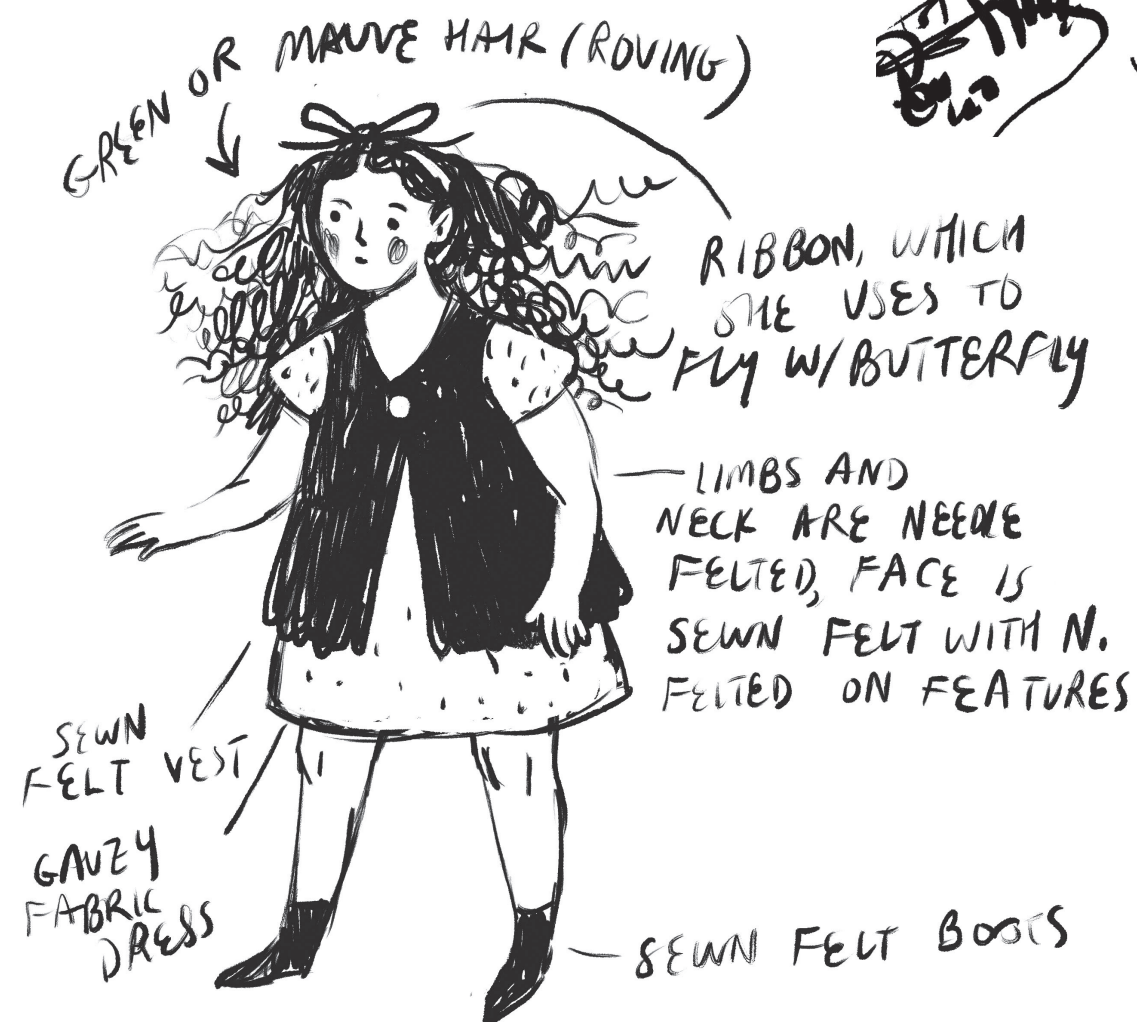 GREEN OR MAUVE HAIR (ROVING)
RIBBON, WHICH
SHE USES TO
FLY W/BUTTERFLY
LIMBS AND
NECK ARE NEEDLE
FELTED, FACE IS
SEWN FELT WITH N.
FELTED ON FEATURES
SEWN
FELT VEST
GAUZY
FABRIC
DRESS
SEWN FELT BOOTS